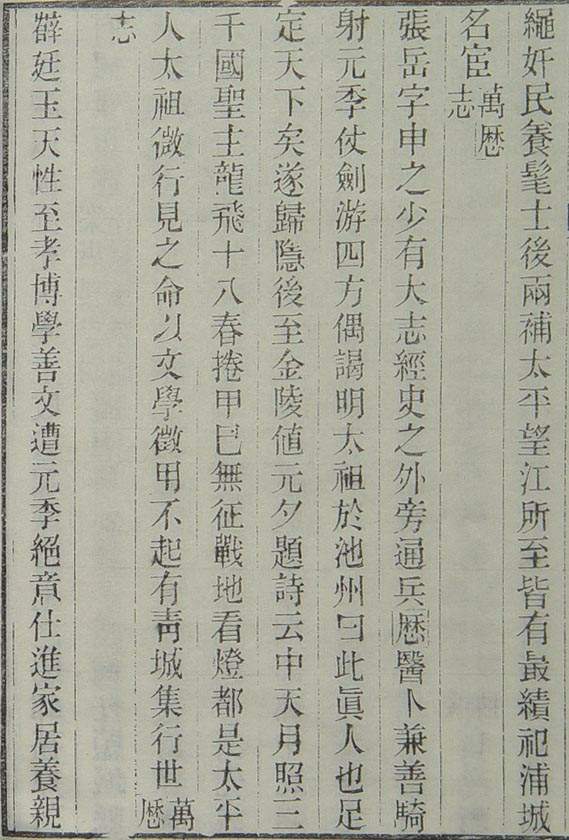 繩奸民養髦士後兩補太平望江所至皆有最績祀浦城
名宦萬歷志
張岳字申之少有大志經史之外旁通兵歷醫卜兼善騎
射元季仗劍游四方偶謁明太祖於池州曰此眞人也足
定天下矣遂歸隱後至金陵値元夕題詩云中天月照三
千國聖主龍飛十八春捲甲已無征戰地看燈都是太平
人太祖微行見之命以文學徵用不起有靑城集行世萬歷
志
薛廷玉天性至孝博學善文遭元季絕意仕進家居養親